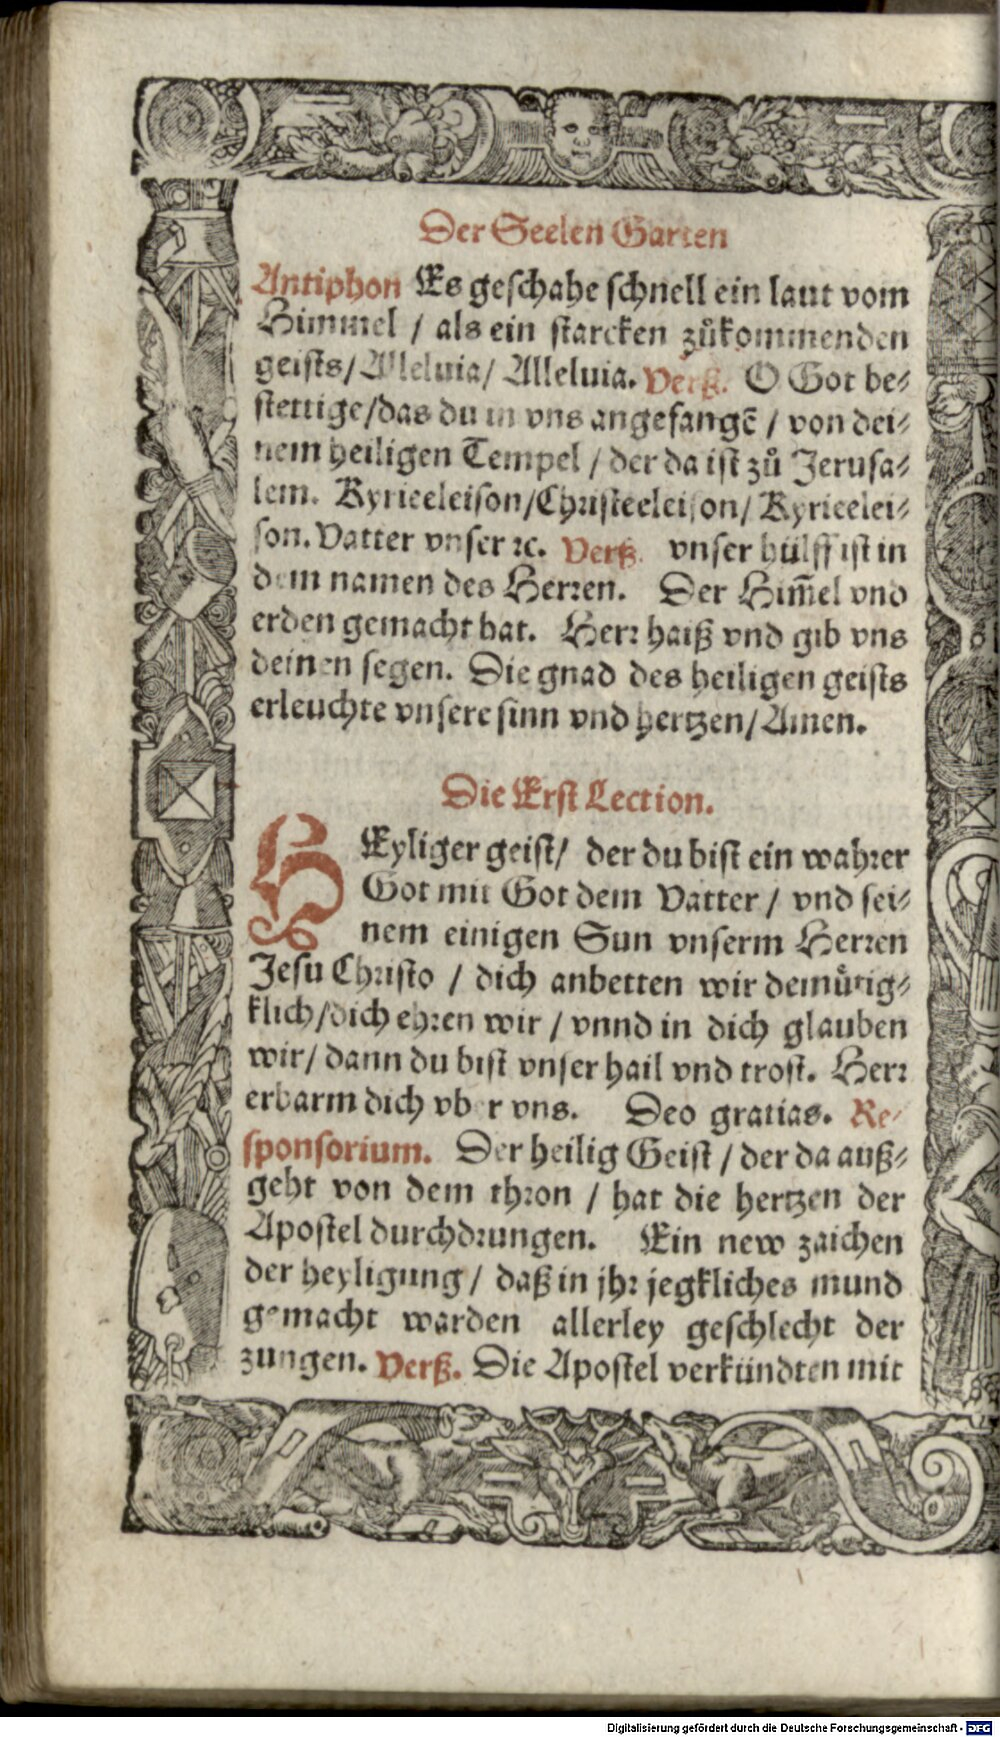 Der Seelen Garten
Antiphon Es geschahe schnell ein laut vom
Himmel / als ein starcken zůkommenden
geists/ Alleluia/ Alleluia. Verß. O Got be⸗
stettige/das du in vns angefangẽ / von dei⸗
nem heiligen Tempel / der da ist zů Jerusa⸗
lem. Kyrieeleison/Christeeleison/ Kyrieelei⸗
son. Vatter vnser ꝛc. Verß. vnser hülff ist in
dem namen des Herꝛen. Der Him̃el vnd
erden gemacht hat. Herꝛ haiß vnd gib vns
deinen segen. Die gnad des heiligen geists
erleuchte vnsere sinn vnd hertzen/Amen.
Die Erst Lection.
HEyliger geist/ der du bist ein wahꝛer
Got mit Got dem Vatter / vnd sei⸗
nem einigen Sun vnserm Herꝛen
Jesu Chꝛisto / dich anbetten wir demuͤtig⸗
klich/dich ehꝛen wir / vnnd in dich glauben
wir/ dann du bist vnser hail vnd trost. Herꝛ
erbarm dich vber vns. Deo gratias. Re⸗
sponsorium. Der heilig Geist / der da auß⸗
geht von dem thꝛon / hat die hertzen der
Apostel durchdꝛungen. Ein new zaichen
der heyligung / daß in jhꝛ jegkliches mund
gemacht warden allerley geschlecht der
zungen. Verß. Die Apostel verkündten mit
Digitalisierung gefördert durch die Deutsche Forschungsgemeinschaft - DFG